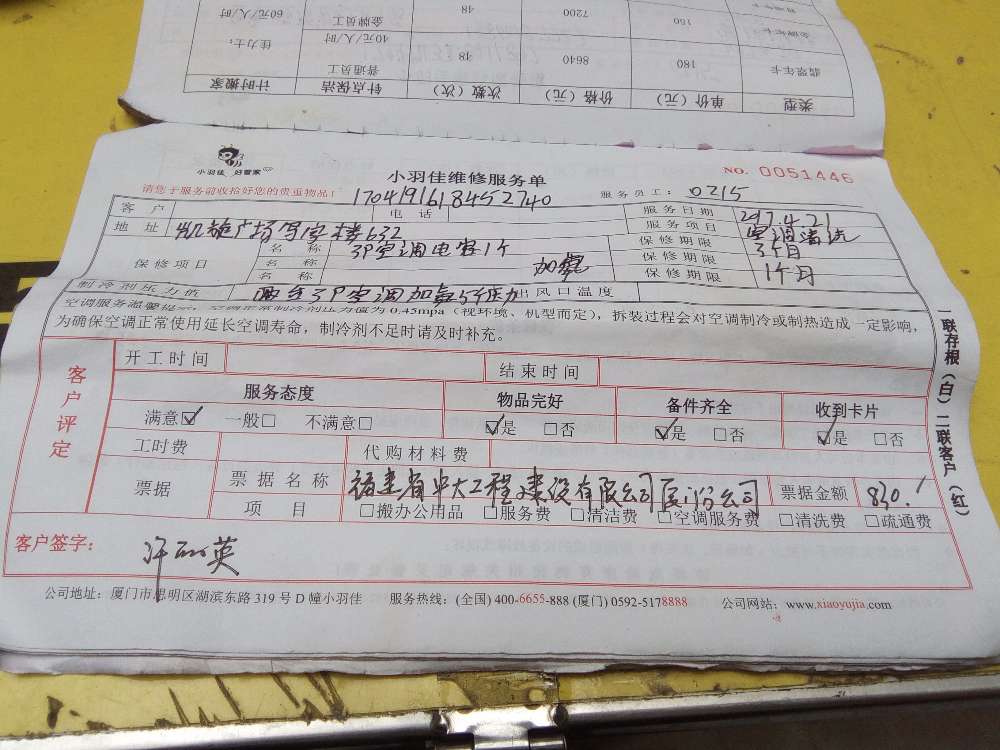 类型 单价（元） 价格（元） 次数（次） 针点保洁 计时搬家
翡翠年卡 180 8640 48 普通员工 40元/人/时 佳力士：
金牌年卡 150 7200 48 金牌员工 60元/人/时
小羽佳 好管家
小羽佳维修服务单
NO. 0051446
请您于服务前收拾好您的贵重物品！
1704191618452740
服务员工： 0215
客户 电话 服务日期 2017.4.21
地址 凯旋广场写字楼632 服务项目 空调清洗
保修项目 名称 3P空调电容1个 保修期限 3个月
名称 加氟 保修期限 1个月
名称 保修期限
制冷剂压力值 两台3P空调加氟5个压力 出风口温度
空调服务温馨提示：空调正常制冷剂压力值为0.45mpa（视环境、机型而定），拆装过程会对空调制冷或制热造成一定影响，
为确保空调正常使用延长空调寿命，制冷剂不足时请及时补充。
客户评定
开工时间 结束时间
服务态度 物品完好 备件齐全 收到卡片
满意☑ 一般□ 不满意□ ☑是 □否 ☑是 □否 ☑是 □否
工时费 代购材料费
票据 票据名称 福建省中大工程建设有限公司厦门分公司 票据金额 830.
项目 □搬办公用品 □服务费 □清洁费 □空调服务费 □清洗费 □疏通费
客户签字：
一联存根（白）二联客户（红）
公司地址：厦门市思明区湖滨东路319号D幢小羽佳 服务热线：(全国) 400-6655-888 (厦门) 0592-5178888 公司网站：www.xiaoyujia.com